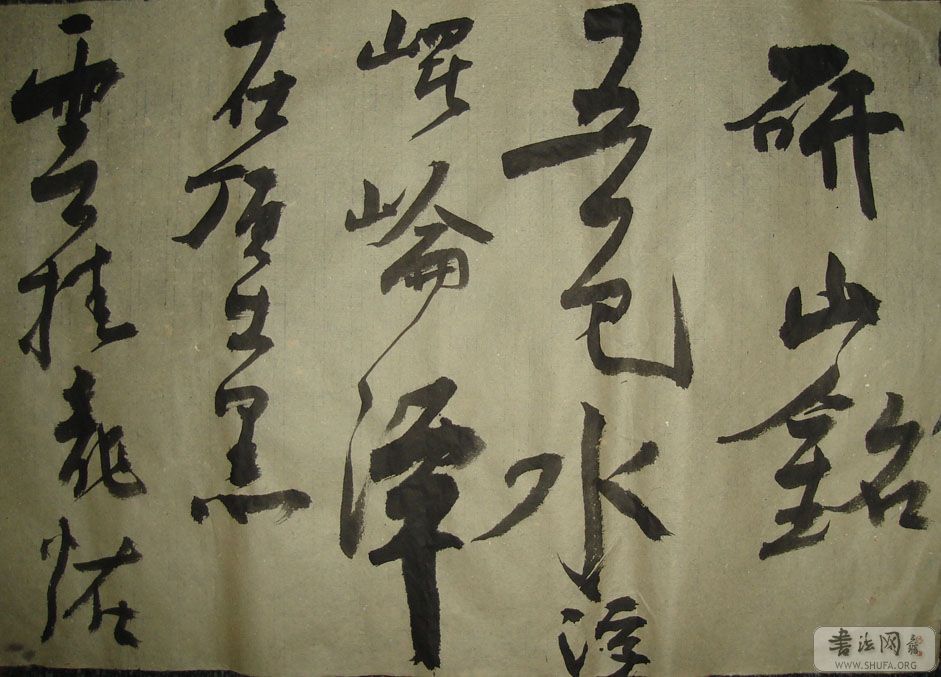 研山銘
五色水浮
崐崘潭
在頂出黑
雲挂龍怪
書法网
WWW.SHUFA.ORG